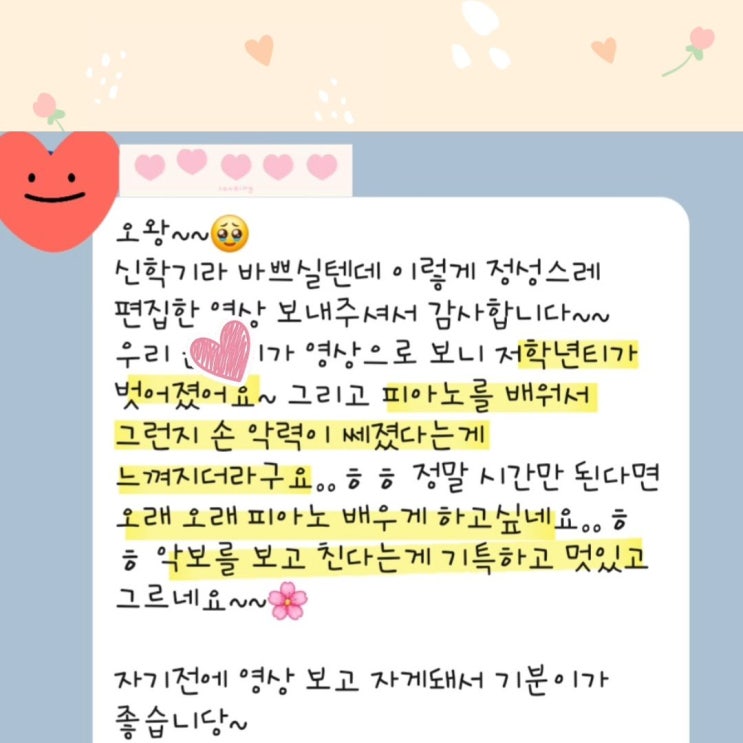 오왕~~🥹
신학기라 바쁘실텐데 이렇게 정성스레
편집한 영상 보내주셔서 감사합니다~~
우리 이가 영상으로 보니 저학년티가
벗어졌어요~ 그리고 피아노를 배워서
그런지 손 악력이 쎄졌다는게
느껴지더라구요.. ㅎ ㅎ 정말 시간만 된다면
오래 오래 피아노 배우게 하고싶네요.. ㅎ
ㅎ 악보를 보고 친다는게 기특하고 멋있고
그르네요~~🌸
자기전에 영상 보고 자게돼서 기분이가
좋습니당~